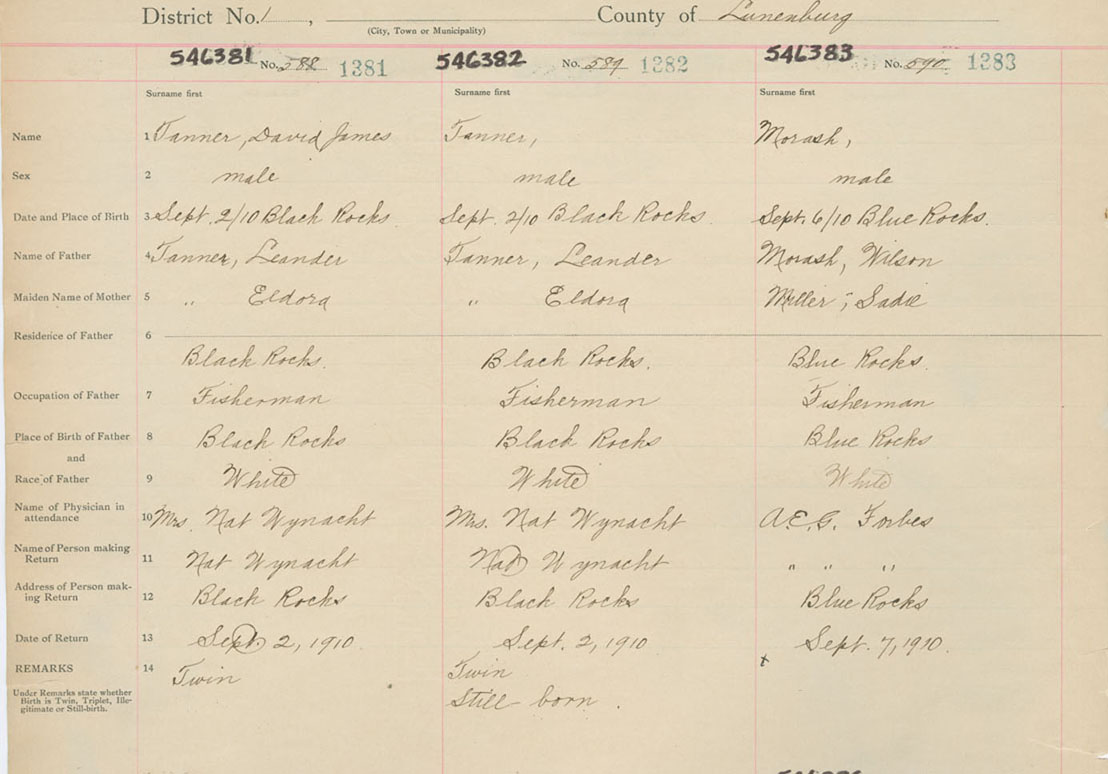 District No. 1, County of Lunenburg
(City, Town or Municipality)
546381 No. 588 1381 546382 No. 589 1382 546383 No. 590 1383
Surname first Surname first Surname first
Name 1 Tanner, David James Tanner, Morash,
Sex 2 male male male
Date and Place of Birth 3 Sept. 2/10 Black Rocks Sept. 2/10 Black Rocks. Sept. 6/10 Blue Rocks.
Name of Father 4 Tanner, Leander Tanner, Leander Morash, Wilson
Maiden Name of Mother 5 " Eldora " Eldora Miller, Sadie
Residence of Father 6
Black Rocks. Black Rocks. Blue Rocks.
Occupation of Father 7 Fisherman Fisherman Fisherman
Place of Birth of Father 8 Black Rocks Black Rocks Blue Rocks
and
Race of Father 9 White White White
Name of Physician in
attendance 10 Mrs. Nat Wynacht Mrs. Nat Wynacht A.E.G. Forbes
Name of Person making
Return 11 Nat Wynacht Nat Wynacht " " "
Address of Person mak-
ing Return 12 Black Rocks Black Rocks Blue Rocks
Date of Return 13 Sept. 2, 1910. Sept. 2, 1910 Sept. 7, 1910.
REMARKS 14 Twin Twin x
Under Remarks state whether
Birth is Twin, Triplet, Ille-
gitimate or Still-birth.
Still born.